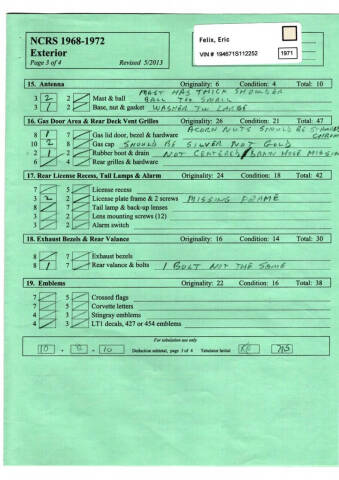 NCRS 1968-1972
Exterior
Page 3 of 4 Revised 5/2013
Felix, Eric
VIN # 194671S112252 1971
15. Antenna Originality: 6 Condition: 4 Total: 10
MAST HAS THICK SHOULDER
3 2 2 Mast & ball BALL TOO SMALL
3 1 2 Base, nut & gasket WASHER TOO LARGE
16. Gas Door Area & Rear Deck Vent Grilles Originality: 26 Condition: 21 Total: 47
ACORN NUTS SHOULD BE
8 1 7 Gas lid door, bezel & hardware
10 2 8 Gas cap SHOULD BE SILVER NOT GOLD
2 1 2 Rubber boot & drain NOT CENTERED/DRAIN HOSE MISSING
6 4 Rear grilles & hardware
17. Rear License Recess, Tail Lamps & Alarm Originality: 24 Condition: 18 Total: 42
7 5 License recess
3 2 2 License plate frame & 2 screws MISSING FRAME
8 7 Tail lamp & back-up lenses
3 2 Lens mounting screws (12)
3 2 Alarm switch
18. Exhaust Bezels & Rear Valance Originality: 16 Condition: 14 Total: 30
8 7 Exhaust bezels
8 1 7 Rear valance & bolts 1 BOLT NOT THE SAME
19. Emblems Originality: 22 Condition: 16 Total: 38
7 5 Crossed flags
7 5 Corvette letters
4 3 Stingray emblems
4 3 LT1 decals, 427 or 454 emblems
For tabulation use only
10 + 0 = 10 Deduction subtotal, page 3 of 4 Tabulator Initial